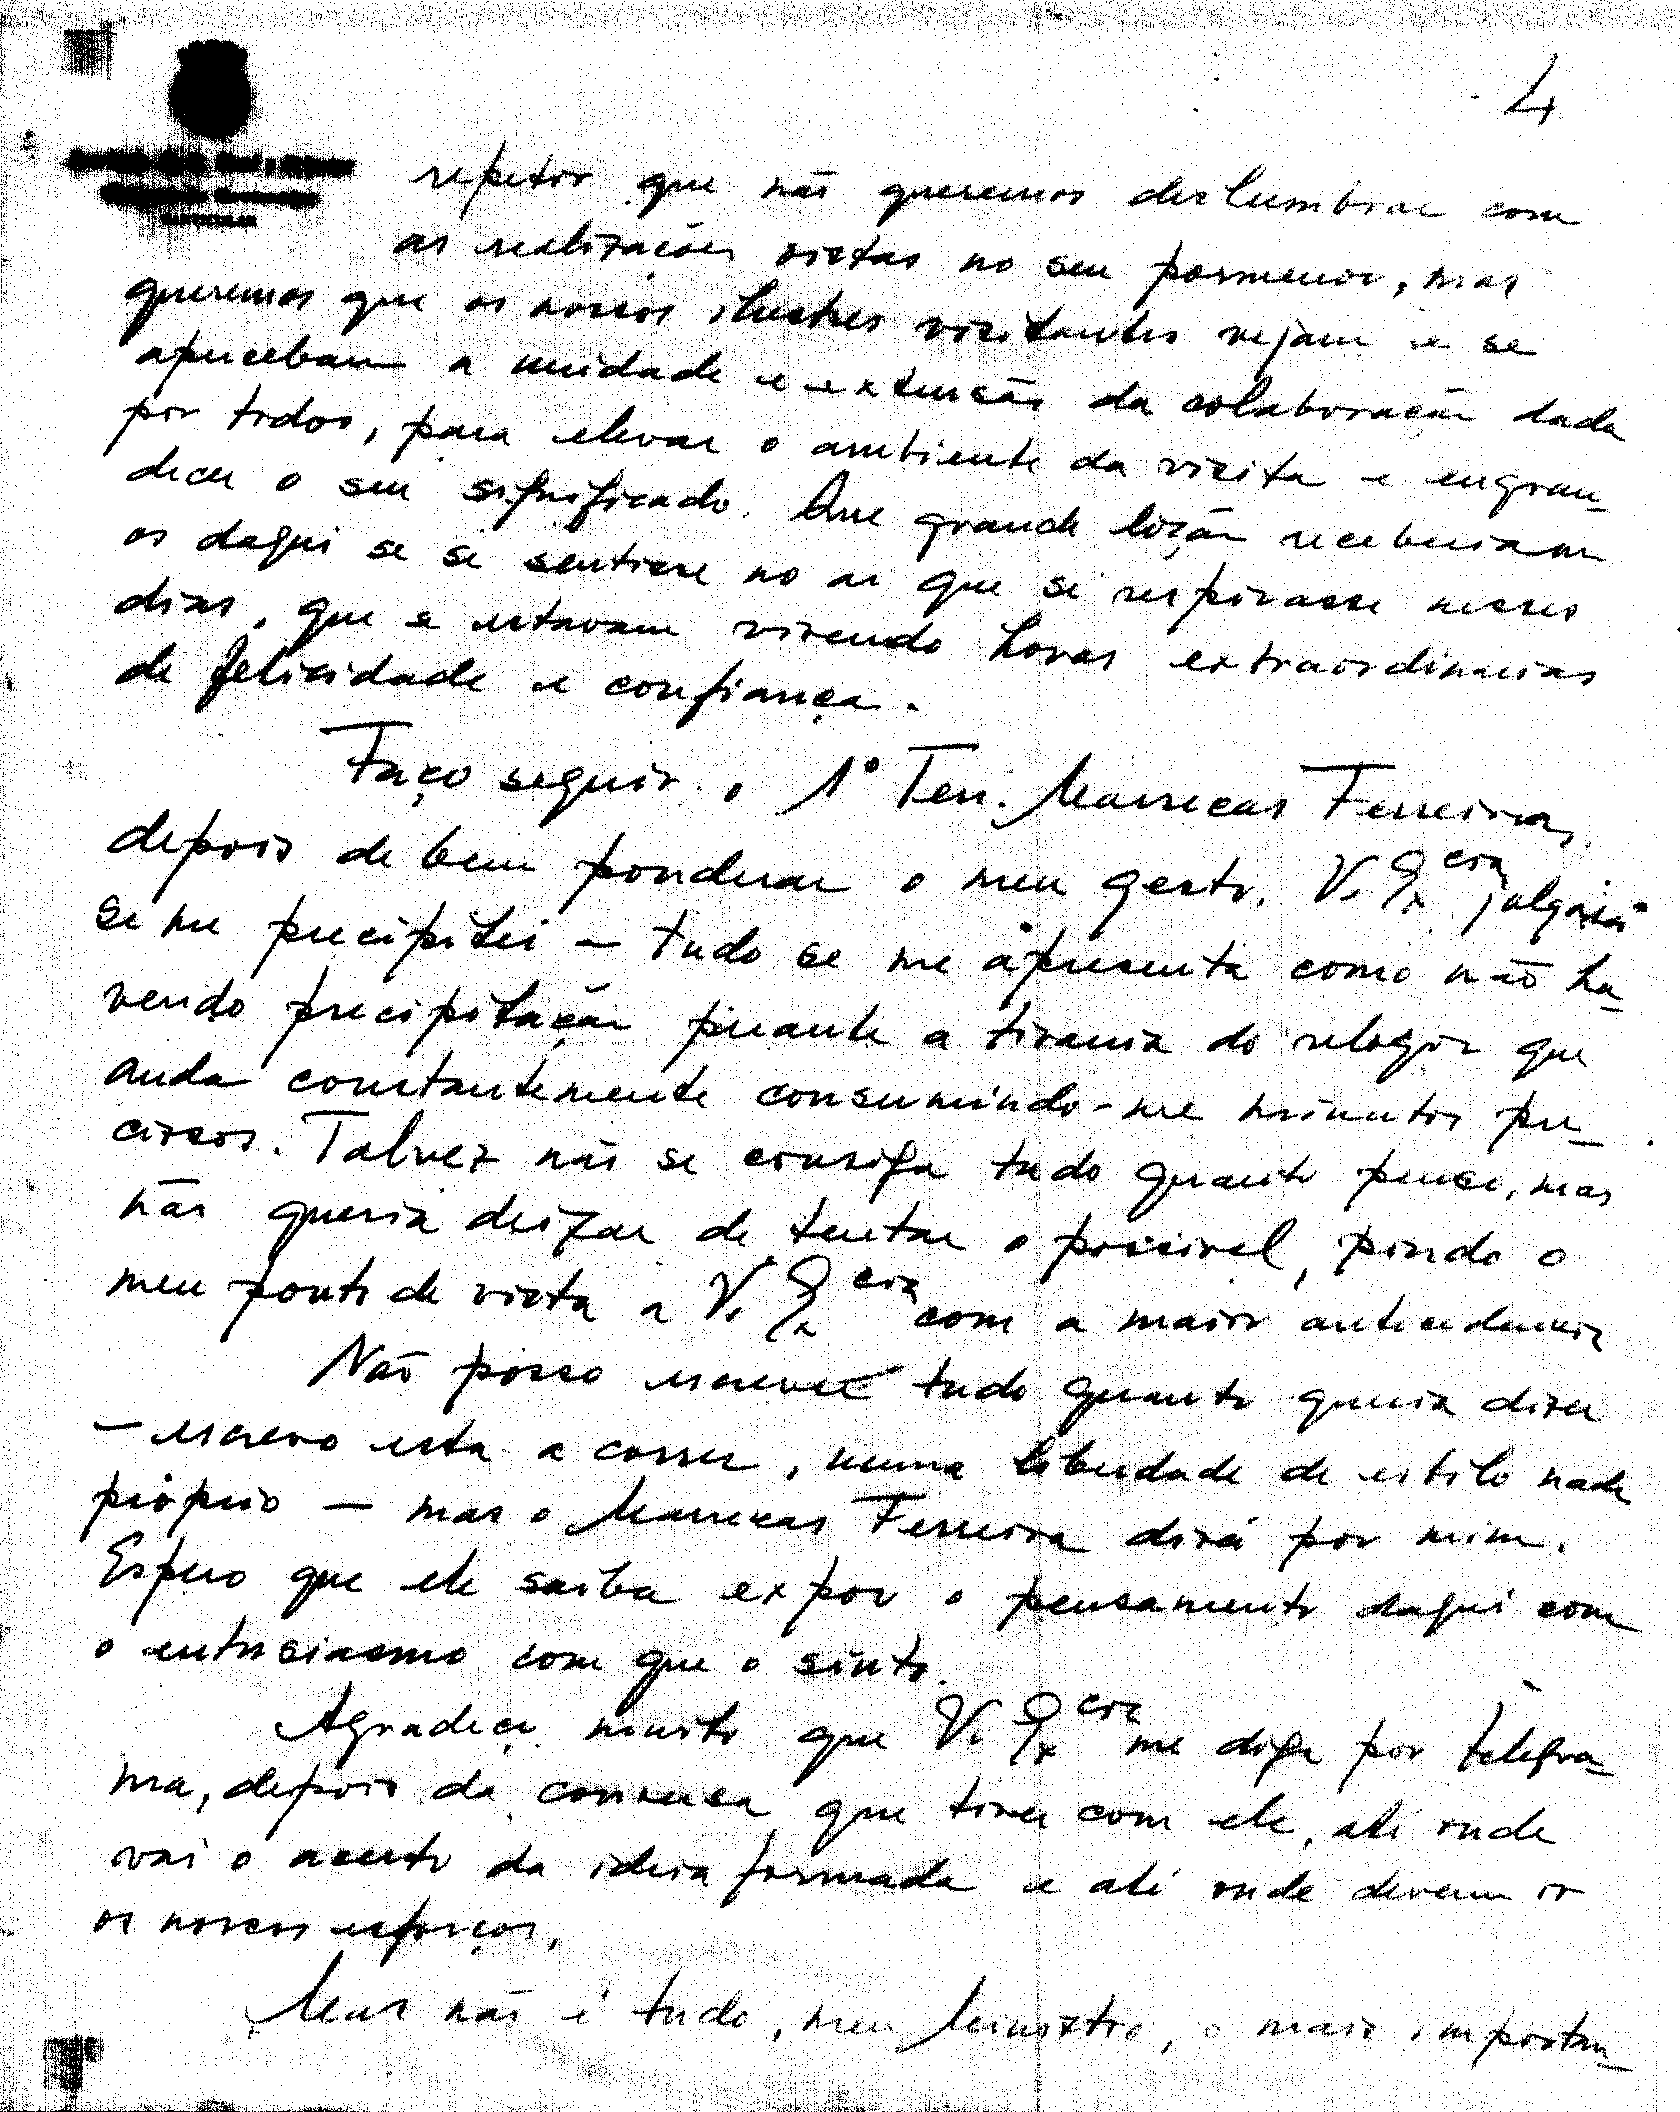 4
repetir que não queremos deslumbrar com
as realizações vistas no seu pormenor, mas
queremos que os nossos ilustres visitantes vejam e se
apercebam a unidade e extensão da colaboração dada
por todos, para elevar o ambiente da visita e engran-
decer o seu significado. Que grande lição receberiam
os daqui se se sentisse no ar que se respirasse nesses
dias, que se estavam vivendo horas extraordinarias
de felicidade e confiança.
Faço seguir o 1º Ten. Marrecas Ferreira,
depois de bem ponderar o meu gesto. V. Excia julgará
se me precipitei — tudo se me apresenta como não ha-
vendo precipitação perante a tirania do relogio que
anda constantemente consumindo-me minutos pre-
ciosos. Talvez não se consiga tudo quanto pensei, mas
não queria deixar de tentar o possivel, pondo o
meu ponto de vista a V. Excia com a maior antecedencia
Não posso escrever tudo quanto queria dizer
— escrevo esta a correr, numa liberdade de estilo nada
próprio — mas o Marrecas Ferreira dirá por mim.
Espero que ele saiba expor o pensamento daqui com
o entusiasmo com que o sinto.
Agradeço muito que V. Excia me diga por telegra-
ma, depois da conversa que tiver com ele, até onde
vai o acerto da ideia formada e até onde devem ir
os nossos esforços.
Mas não é tudo, meu Ministro, o mais importan-